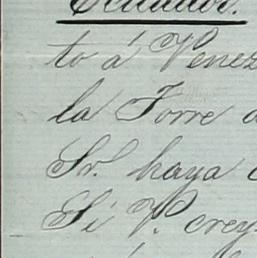 Ecuador.
to á Venez
la Torre
Sr. haya
Si V. crey